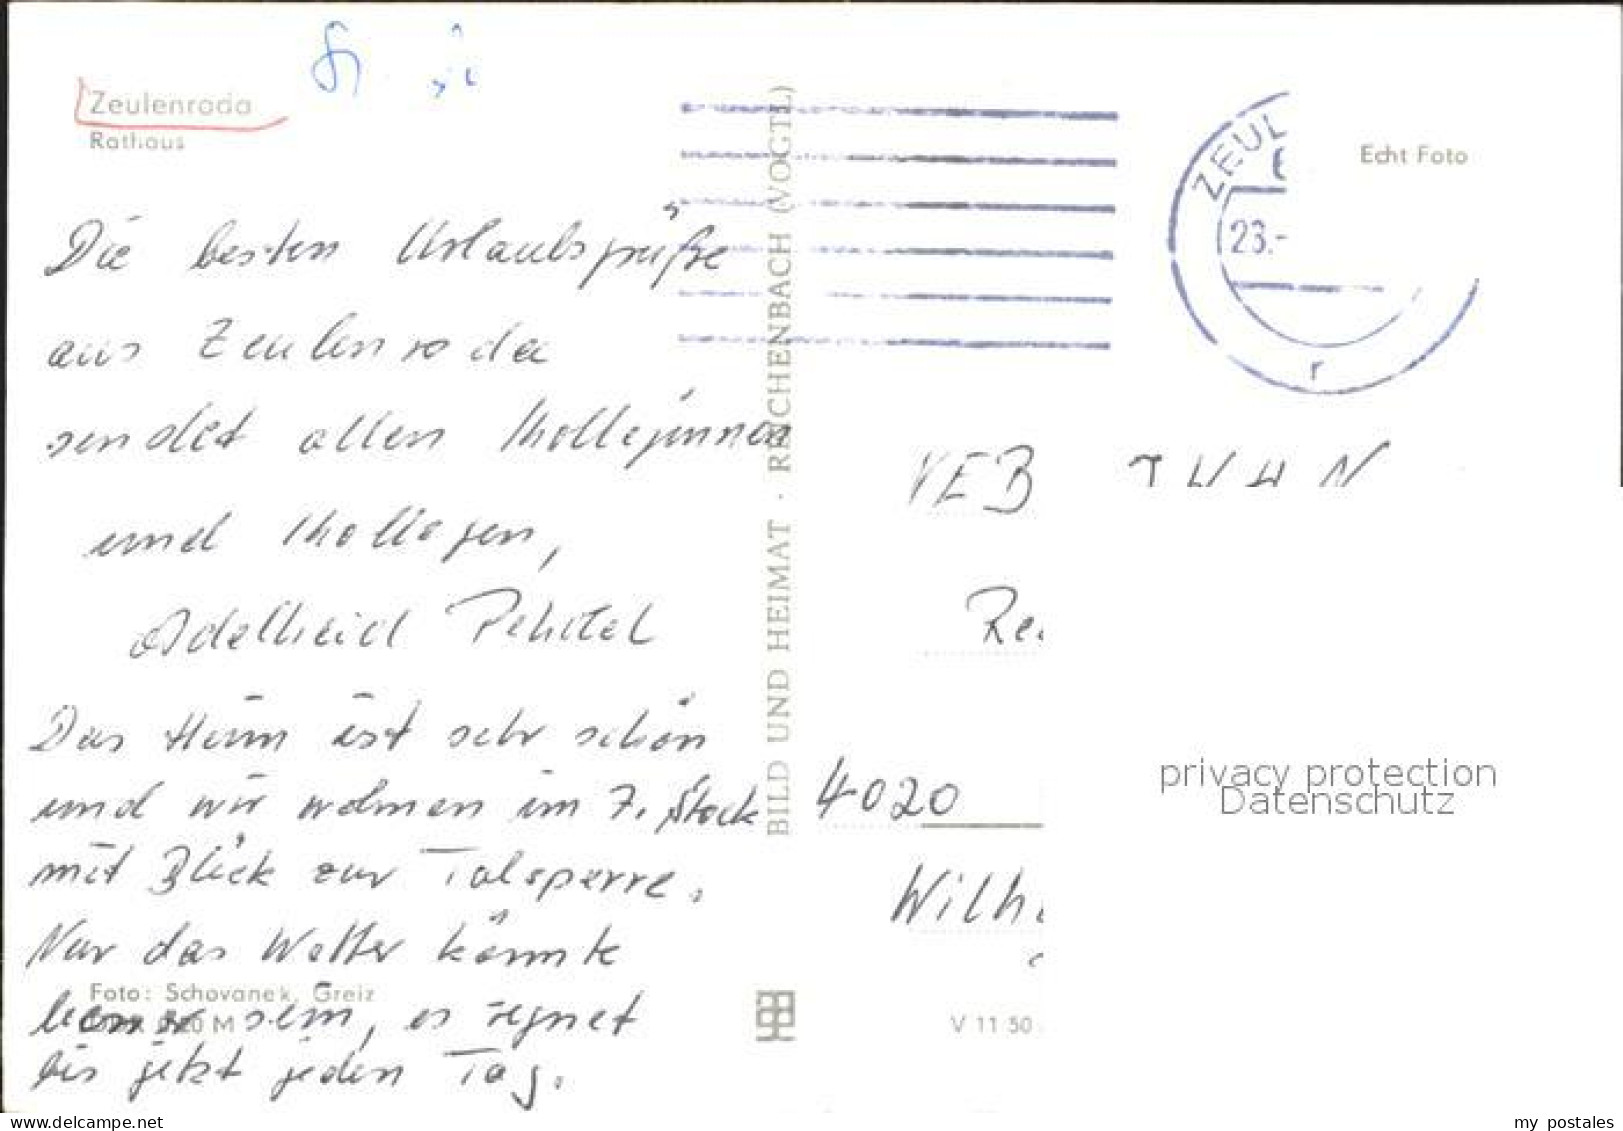 Zeulenroda
Rathaus
Echt Foto
ZEUL
23.-
r
Die besten Urlaubsgrüße
aus Zeulenroda
sendet allen Kolleginnen
und Kollegen,
Adelheid
Das Heim ist sehr schön
und wir wohnen im 7. Stock
mit Blick zur Talsperre.
Nur das Wetter könnte
besser sein, es regnet
bis jetzt jeden Tag.
Foto: Schovanek, Greiz
BILD UND HEIMAT · REICHENBACH (VOGTL)
VEB
4020
V 11 50
privacy protection
Datenschutz
www.delcampe.net
my_postales